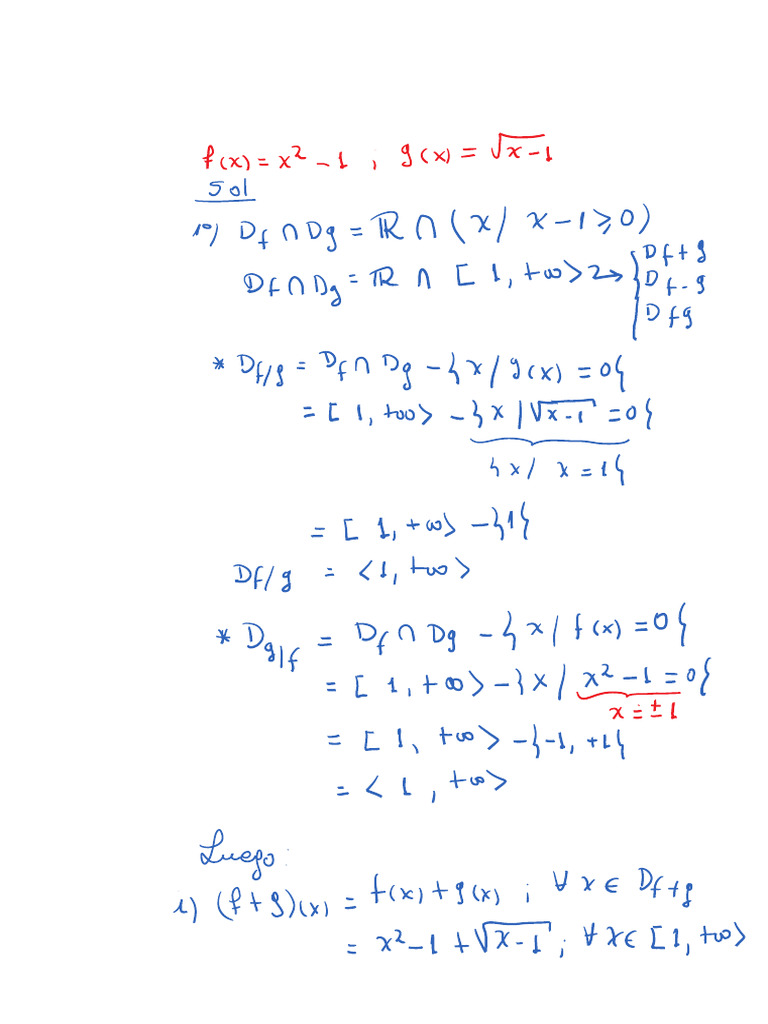 f(x) = x² - 1 ; g(x) = √(x-1)
Sol
1º) Df ∩ Dg = ℝ ∩ (x/ x-1 ≥ 0)
Df ∩ Dg = ℝ ∩ [1, +∞> → { Df+g
Df-g
Dfg
* Df/g = Df ∩ Dg - {x/ g(x) = 0}
= [1, +∞> - {x/ √(x-1) = 0}
{x/ x = 1}
= [1, +∞> - {1}
Df/g = <1, +∞>
* Dg/f = Df ∩ Dg - {x/ f(x) = 0}
= [1, +∞> - {x/ x² - 1 = 0}
x = ±1
= [1, +∞> - {-1, +1}
= <1, +∞>
Luego:
i) (f+g)(x) = f(x) + g(x) ; ∀ x ∈ Df+g
= x² - 1 + √(x-1) ; ∀ x ∈ [1, +∞>